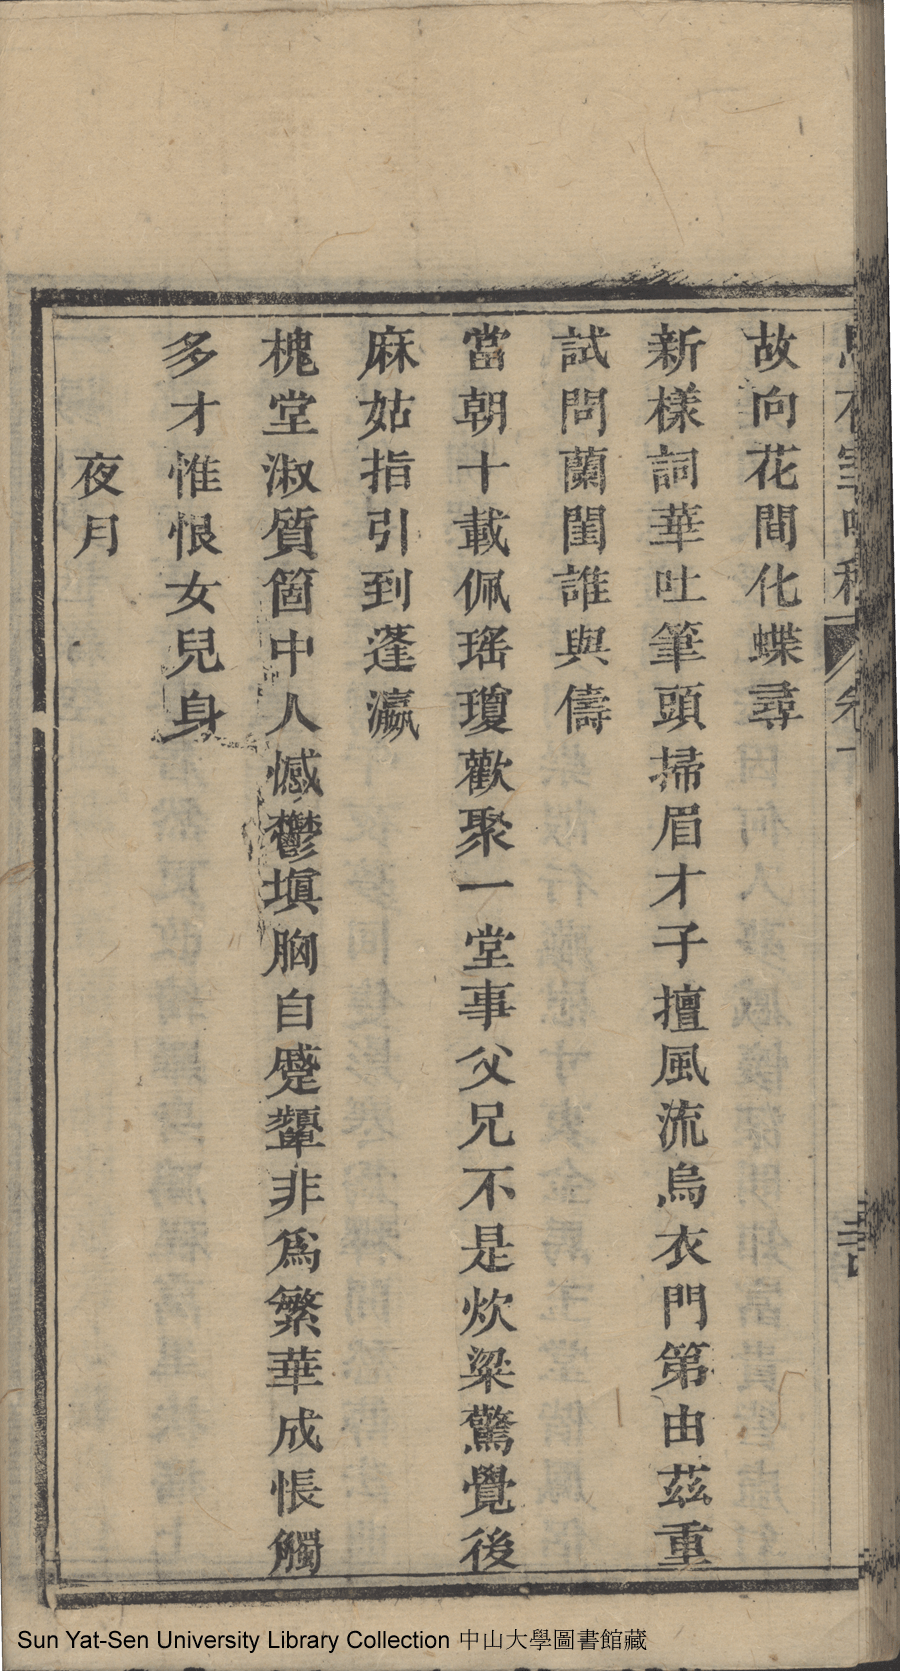 故向花間化蝶尋
新樣詞華吐筆頭掃眉才子擅風流烏衣門第由茲重
試問蘭閨誰與儔
當朝十載佩瑤瓊歡聚一堂事父兄不是炊粱驚覺後
麻姑指引到蓬瀛
槐堂淑質箇中人憾鬱塡胸自蹙顰非爲繁華成悵觸
多才惟恨女兒身
夜月
Sun Yat-Sen University Library Collection 中山大學圖書館藏